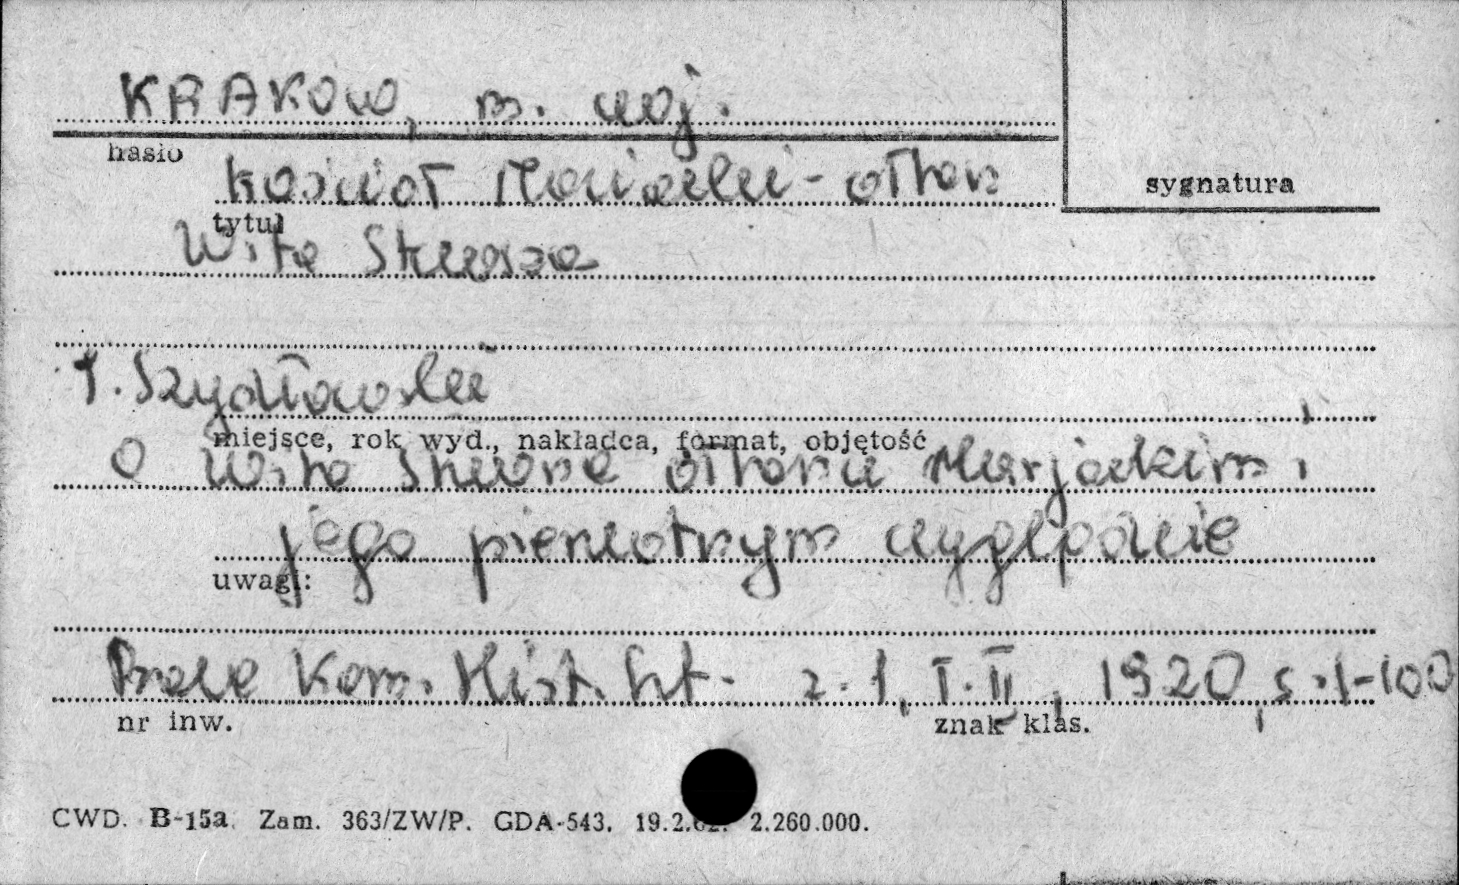 KRAKÓW, m. woj.
hasło
sygnatura
Kościół Mariacki - ołtarz
tytuł
Wita Stwosza
T. Szydłowski
miejsce, rok wyd., nakładca, format, objętość
O Wita Stwosza ołtarzu Marjackim i
jego pierwotnym wyglądzie
uwagi:
Prace Kom. Hist. Szt. z. 1, T. II, 1920, s. 1-100
nr inw.
znak klas.
CWD. B-15a. Zam. 363/ZW/P. GDA-543. 19.2.62. 2.260.000.